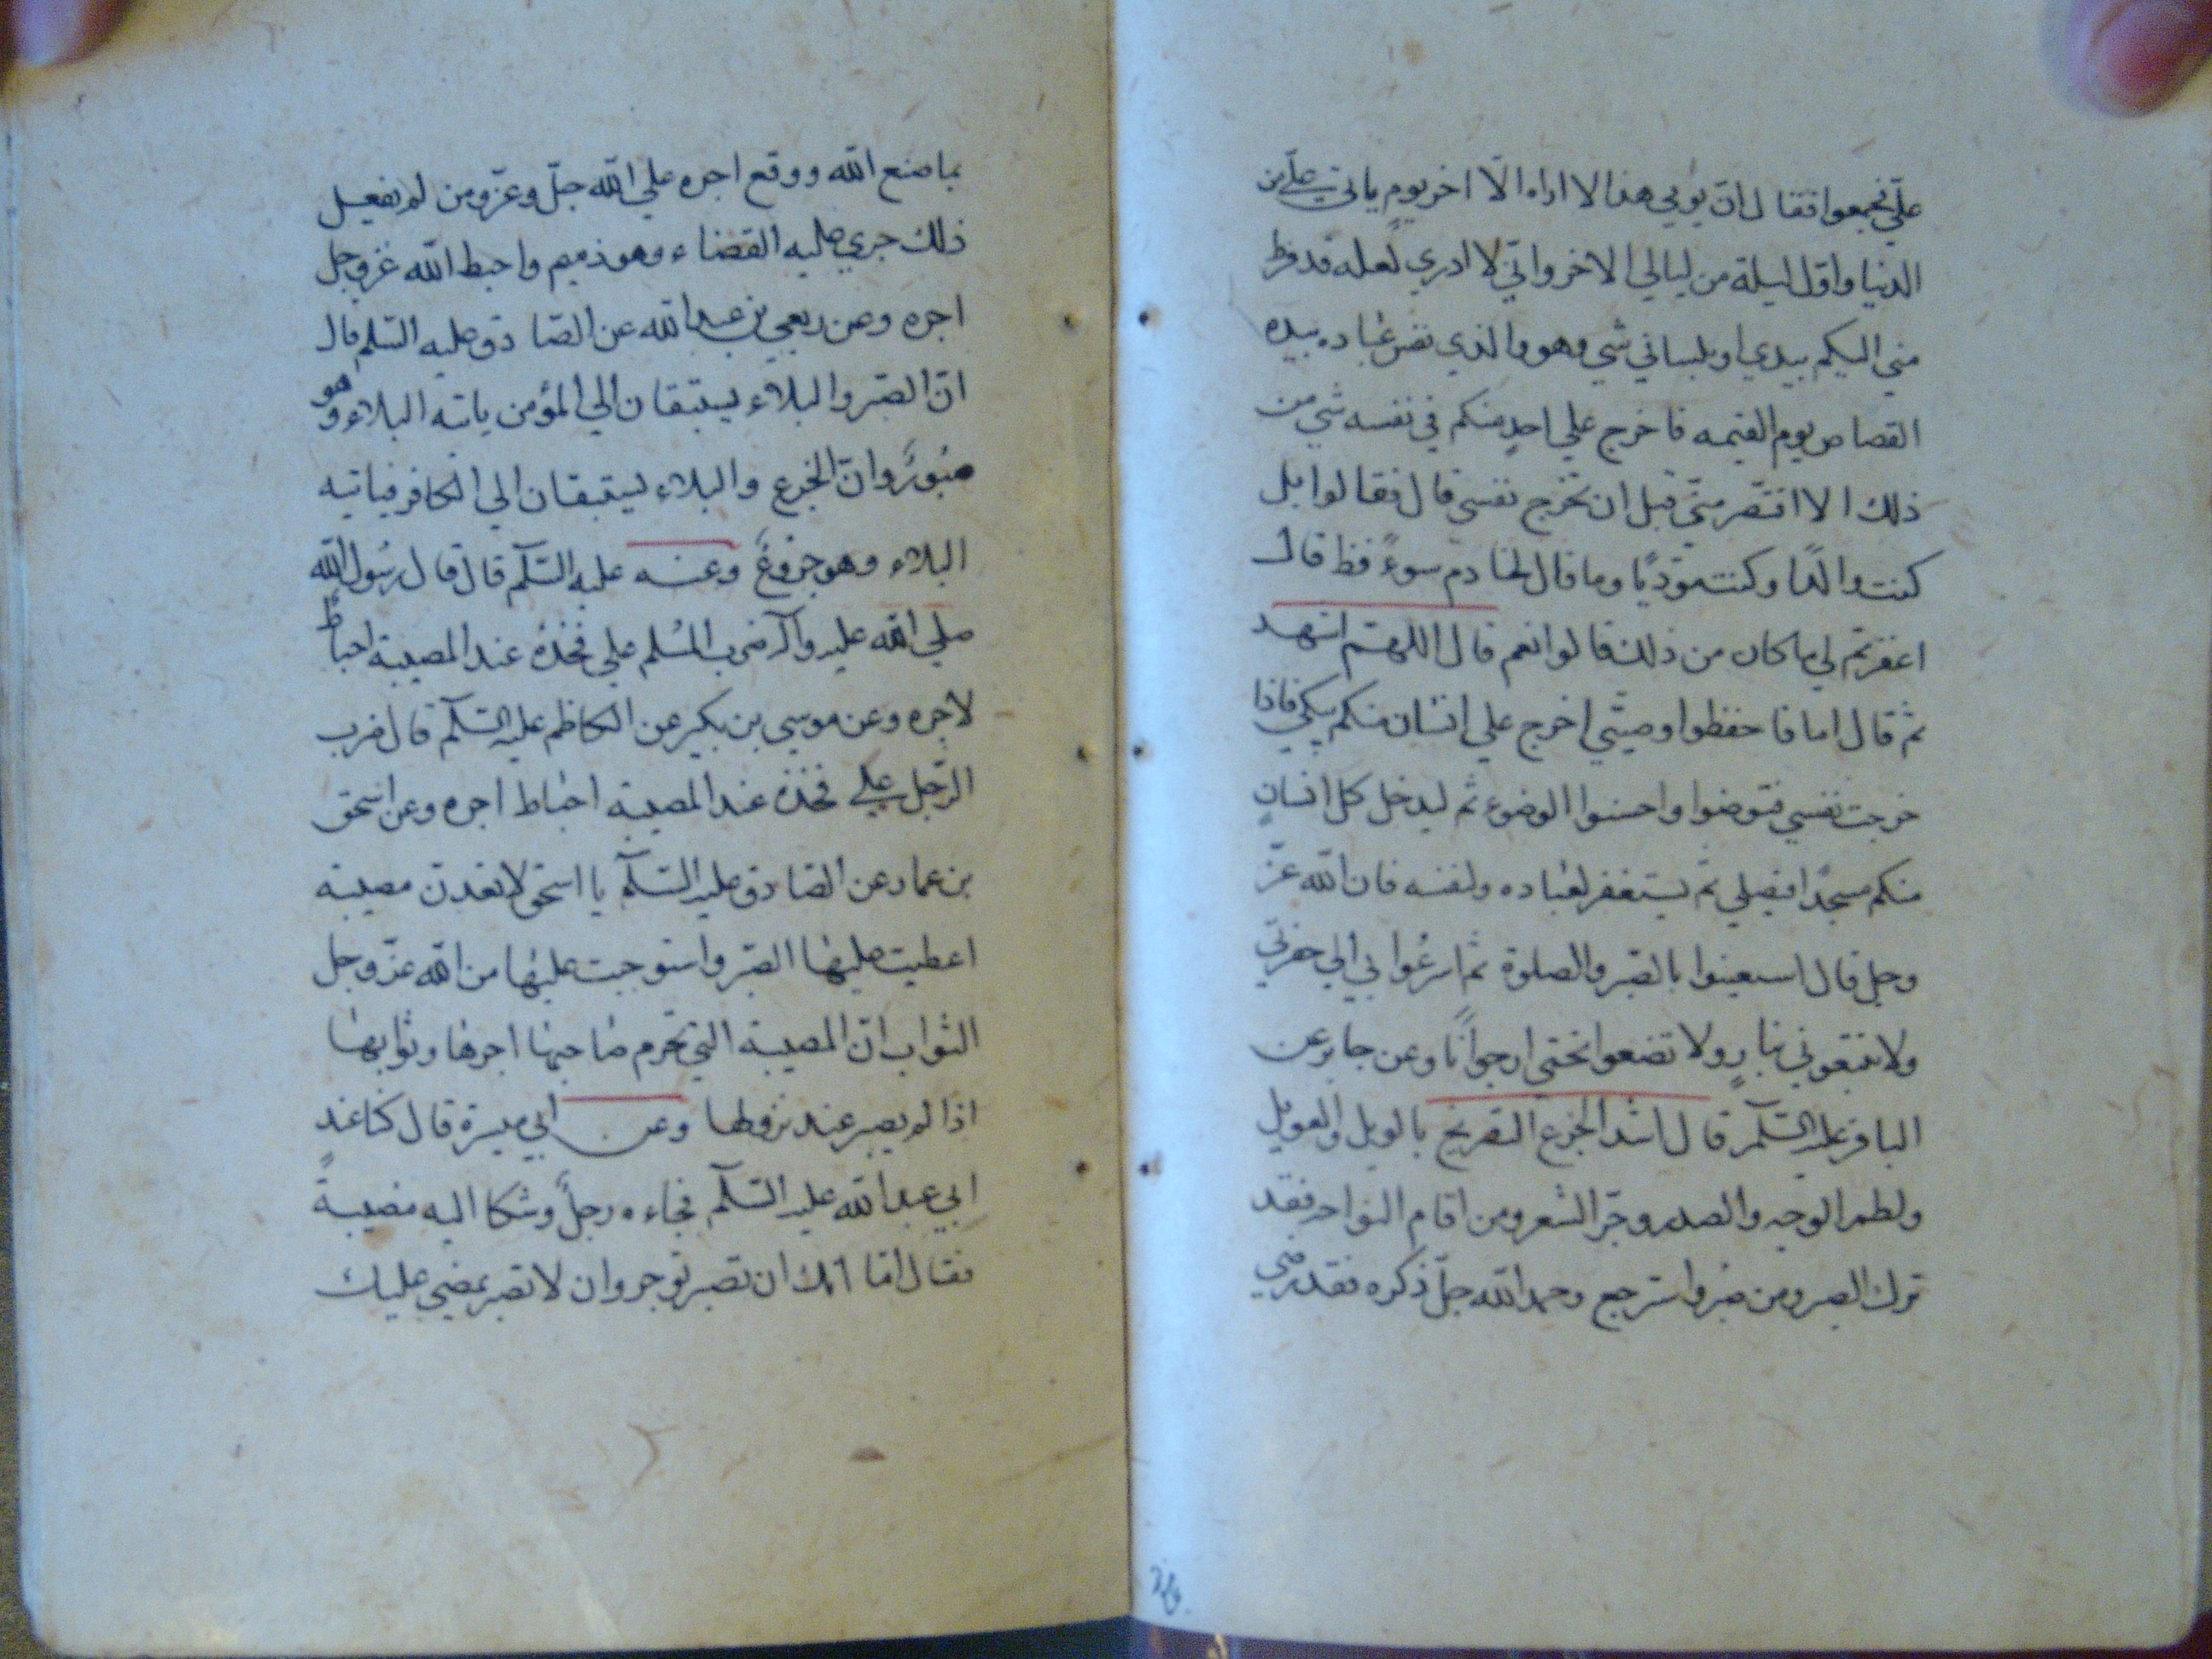 علي فجمعوا فقال ان يومي هذا لا اراه الا اخر يوم ياتي علي من
الدنيا واول ليلة من ليالي الاخر واني لا ادري لعله قد فرط
مني اليكم بيدي او بلساني شي وهو والذي نفس عباده بيده
القصاص يوم القيمه فاخرج علي احد منكم في نفسه شي من
ذلك الا اقتص مني قبل ان تخرج نفسي قال فقالوا بل
كنت والدا وكنت مؤدبا وما قال لخادم سوء قط قال
اغفرتم لي ما كان من ذلك قالوا نعم قال اللهم اشهد
ثم قال اما فاحفظوا وصيتي اخرج علي انسان منكم يبكي فاذا
خرجت نفسي فتوضوا واحسنوا الوضوء ثم ليدخل كل انسان
منكم مسجدا فيصلي ثم يستغفر لعباده ولنفسه فان الله عز
وجل قال استعينوا بالصبر والصلوة ثم اسرعوا بي الي حفرتي
ولا تتبعوني بنار ولا تضعوا تحتي ارجوانا وعن جابر عن
الباقر عليه السلم قال اشد الجزع الصريخ بالويل والعويل
ولطم الوجه والصدر وجز الشعر ومن اقام النواحه فقد
ترك الصبر ومن صبر واسترجع وحمد الله جل ذكره فقد رضي
بما صنع الله ووقع اجره علي الله جل وعز ومن لم يفعل
ذلك جري عليه القضاء وهو ذميم واحبط الله عز وجل
اجره وعن ربعي بن عبد الله عن الصادق عليه السلم قال
ان الصبر والبلاء يستبقان الي المؤمن ياتيه البلاء وهو
صبور وان الجزع والبلاء يستبقان الي الكافر فياتيه
البلاء وهو جزوع وعنه عليه السلم قال قال رسول الله
صلي الله عليه وآله ضرب المسلم علي فخذه عند المصيبة احباط
لاجره وعن موسي بن بكير عن الكاظم عليه السلم قال ضرب
الرجل علي فخذه عند المصيبة احباط اجره وعن اسحق
بن عمار عن الصادق عليه السلم يا اسحق لا تعدن مصيبة
اعطيت عليها الصبر واستوجبت عليها من الله عز وجل
الثواب ان المصيبة التي تحرم صاحبها اجرها وثوابها
اذا لم يصبر عند نزولها وعن ابي ميسرة قال كنا عند
ابي عبد الله عليه السلم فجاءه رجل وشكا اليه مصيبة
فقال اما انك ان تصبر توجر وان لا تصبر يمضي عليك